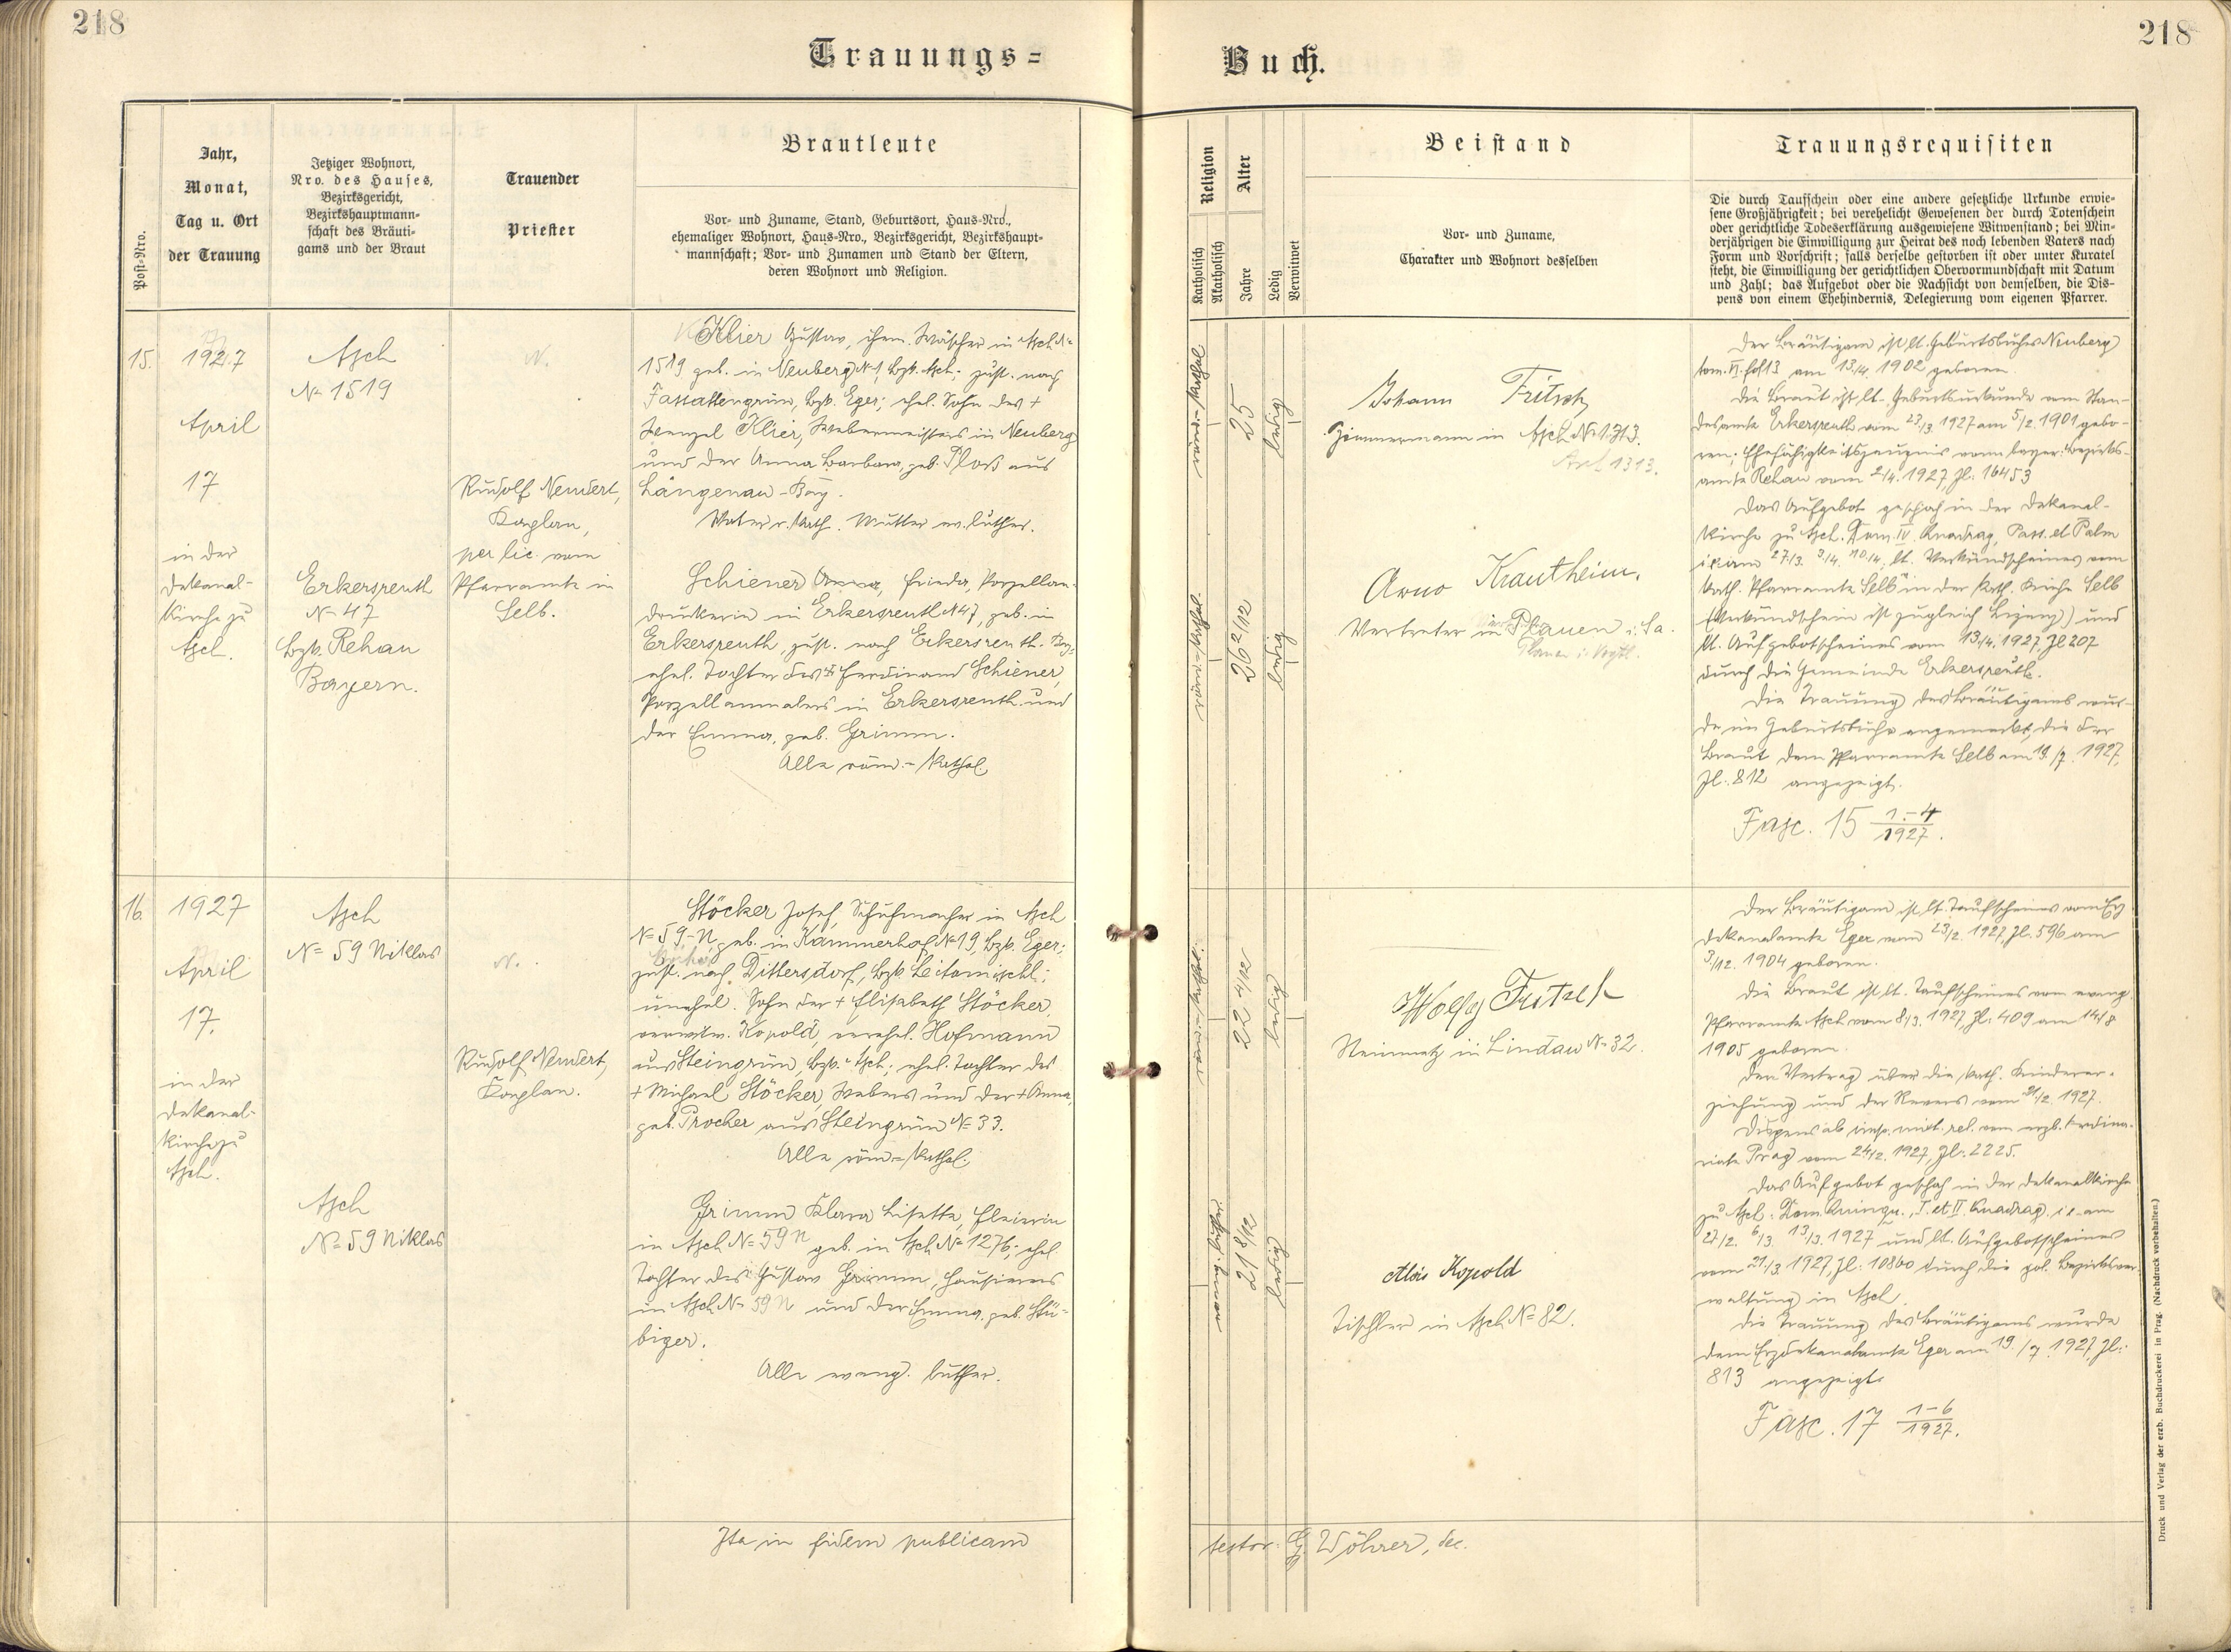 218
218
Trauungs=
Buch.
Post-Nro.
Jahr,
Monat,
Tag u. Ort
der Trauung
Jetziger Wohnort,
Nro. des Hauses,
Bezirksgericht,
Bezirkshauptmann-
schaft des Bräuti-
gams und der Braut
Trauender
Priester
Brautleute
Vor- und Zuname, Stand, Geburtsort, Haus-Nro.,
ehemaliger Wohnort, Haus-Nro., Bezirksgericht, Bezirkshaupt-
mannschaft; Vor- und Zunamen und Stand der Eltern,
deren Wohnort und Religion.
Religion
Katholisch
Akatholisch
Alter
Jahre
Ledig
Verwitwet
Beistand
Vor- und Zuname,
Charakter und Wohnort desselben
Trauungsrequisiten
Die durch Taufschein oder eine andere gesetzliche Urkunde erwie-
sene Großjährigkeit; bei verehelicht Gewesenen der durch Totenschein
oder gerichtliche Todeserklärung ausgewiesene Witwenstand; bei Min-
derjährigen die Einwilligung zur Heirat des noch lebenden Vaters nach
Form und Vorschrift; falls derselbe gestorben ist oder unter Kuratel
steht, die Einwilligung der gerichtlichen Obervormundschaft mit Datum
und Zahl; das Aufgebot oder die Nachsicht von demselben, die Dis-
pens von einem Ehehindernis, Delegierung vom eigenen Pfarrer.
15.
1927
April
17
in der
Dekanal-
kirche zu
Asch.
Asch
N= 1519
Erkersreuth
N= 47
Bzk. Rehau
Bayern.
N.
Rudolf Neudert,
Kaplan,
per lic. vom
Pfarramte in
Selb.
Klier Gustav, chem. Wäscher in Asch N=
1519 geb. in Neuberg N=1, Bzk. Asch; zust. nach
Fassattengrün, Bzk. Eger; ehel. Sohn des +
Wenzel Klier, Webermeisters in Neuberg
und der Anna Barbara, geb. Ploß aus
Längenau - Bay.
Vater r. kath. Mutter ev. luther.
Schiener Anna, Frieda, Porzellan-
druckerin in Erkersreuth N=47, geb. in
Erkersreuth, zust. nach Erkersreuth - Bay.
ehel. Tochter des Ferdinand Schiener,
Porzellanmalers in Erkersreuth und
der Emma, geb. Grimm.
Alle röm.-kathol.
röm.-kathol.
25
ledig
röm.-kathol.
26 2/12
ledig
Johann Fritsch
Zimmermann in Asch N=1313.
1313.
Arno Krautheim.
Vertreter in Plauen i. Sa.
Plauen i. Vogtl.
Der Bräutigam ist lt. Geburtsbuches Neuberg
tom. VI. fol 13 am 13./4. 1902 geboren.
Die Braut ist lt. Geburtsurkunde vom Stan-
desamte Erkersreuth vom 23./3. 1927 am 5./2. 1901 gebo-
ren; Ehefähigkeitszeugnis vom bayer. Bezirks-
amte Rehau vom 2/4. 1927, Zl. 16453
Das Aufgebot geschah in der Dekanal-
kirche zu Asch. Dom. IV Quadrag, Pass. et Palm
i.e. am 27./3. 3./4. 10./4., lt. Verkündscheines vom
kath. Pfarramte Selb in der kath. Kirche Selb
(Verkündschein ist zugleich Lizenz) und
lt. Aufgebotscheines vom 13./4. 1927, Zl 207
durch die Gemeinde Erkersreuth.
Die Trauung des Bräutigams wur-
de im Geburtsbuche angemerkt, die der
Braut dem Pfarramte Selb am 19./7. 1927,
Zl. 812 angezeigt.
Fasc. 15 1.-4/1927.
16.
1927
April
17.
in der
Dekanal-
kirche zu
Asch.
Asch
N= 59 Niklas
Asch
N= 59 Niklas
N.
Rudolf Neudert,
Kaplan.
Stöcker Josef, Schuhmacher in Asch
N= 59-N, geb. in Kammerhof N=19, Bzk. Eger;
zust. nach Dittersdorf, Bzk. Leitomischl;
unehel. Sohn der + Elisabeth Stöcker,
verwitw. Kopold, verehel. Hofmann
aus Steingrün, Bzk. Asch; ehel. Tochter des
+ Michael Stöcker, Webers und der + Anna,
geb. Procher aus Steingrün N= 33.
Alle röm=kathol.
Grimm Klara Lisette,
in Asch N= 59 N geb. in Asch N= 1276; ehel.
Tochter des Gustav Grimm, Hausierers
in Asch N= 59 N und der Emma, geb. Stü-
biger.
Alle evang. luther.
röm.-kathol.
22 4/12
ledig
evang. luther.
21 8/12
ledig
Wolfg Fritsch
Steinmetz in Lindau N= 32.
Alois Kopold
Tischler in Asch N= 82.
Der Bräutigam ist lt. Taufscheines vom Erz-
dekanalamte Eger vom 23/2. 1927, Zl. 596 am
3/12. 1904 geboren.
Die Braut ist lt. Taufscheines vom evang.
Pfarramte Asch vom 8/3. 1927, Zl. 409 am 14/8
1905 geboren.
Der Vertrag über die kath. Kinderer-
ziehung und der Revers vom 21/2. 1927.
Dispens ab imp. mixt. rel. vom erzb. Ordina-
riate Prag vom 24/2. 1927, Zl. 2225.
Das Aufgebot geschah in der Dekanalkirche
zu Asch. Dom. Quinqu., I. et II. Quadrag. i.e. am
27/2. 6/3. 13/3. 1927 und lt. Aufgebotscheines
vom 21./3. 1927, Zl. 10860 durch die pol. Bezirksver-
waltung in Asch.
Die Trauung des Bräutigams wurde
dem Erzdekanalamte Eger am 19./7. 1927, Zl.
813 angezeigt.
Fasc. 17 1-6/1927.
Ita in fidem publicam
testor. G. Wöhrer, dec.
Druck und Verlag der erzb. Buchdruckerei in Prag. (Nachdruck vorbehalten.)